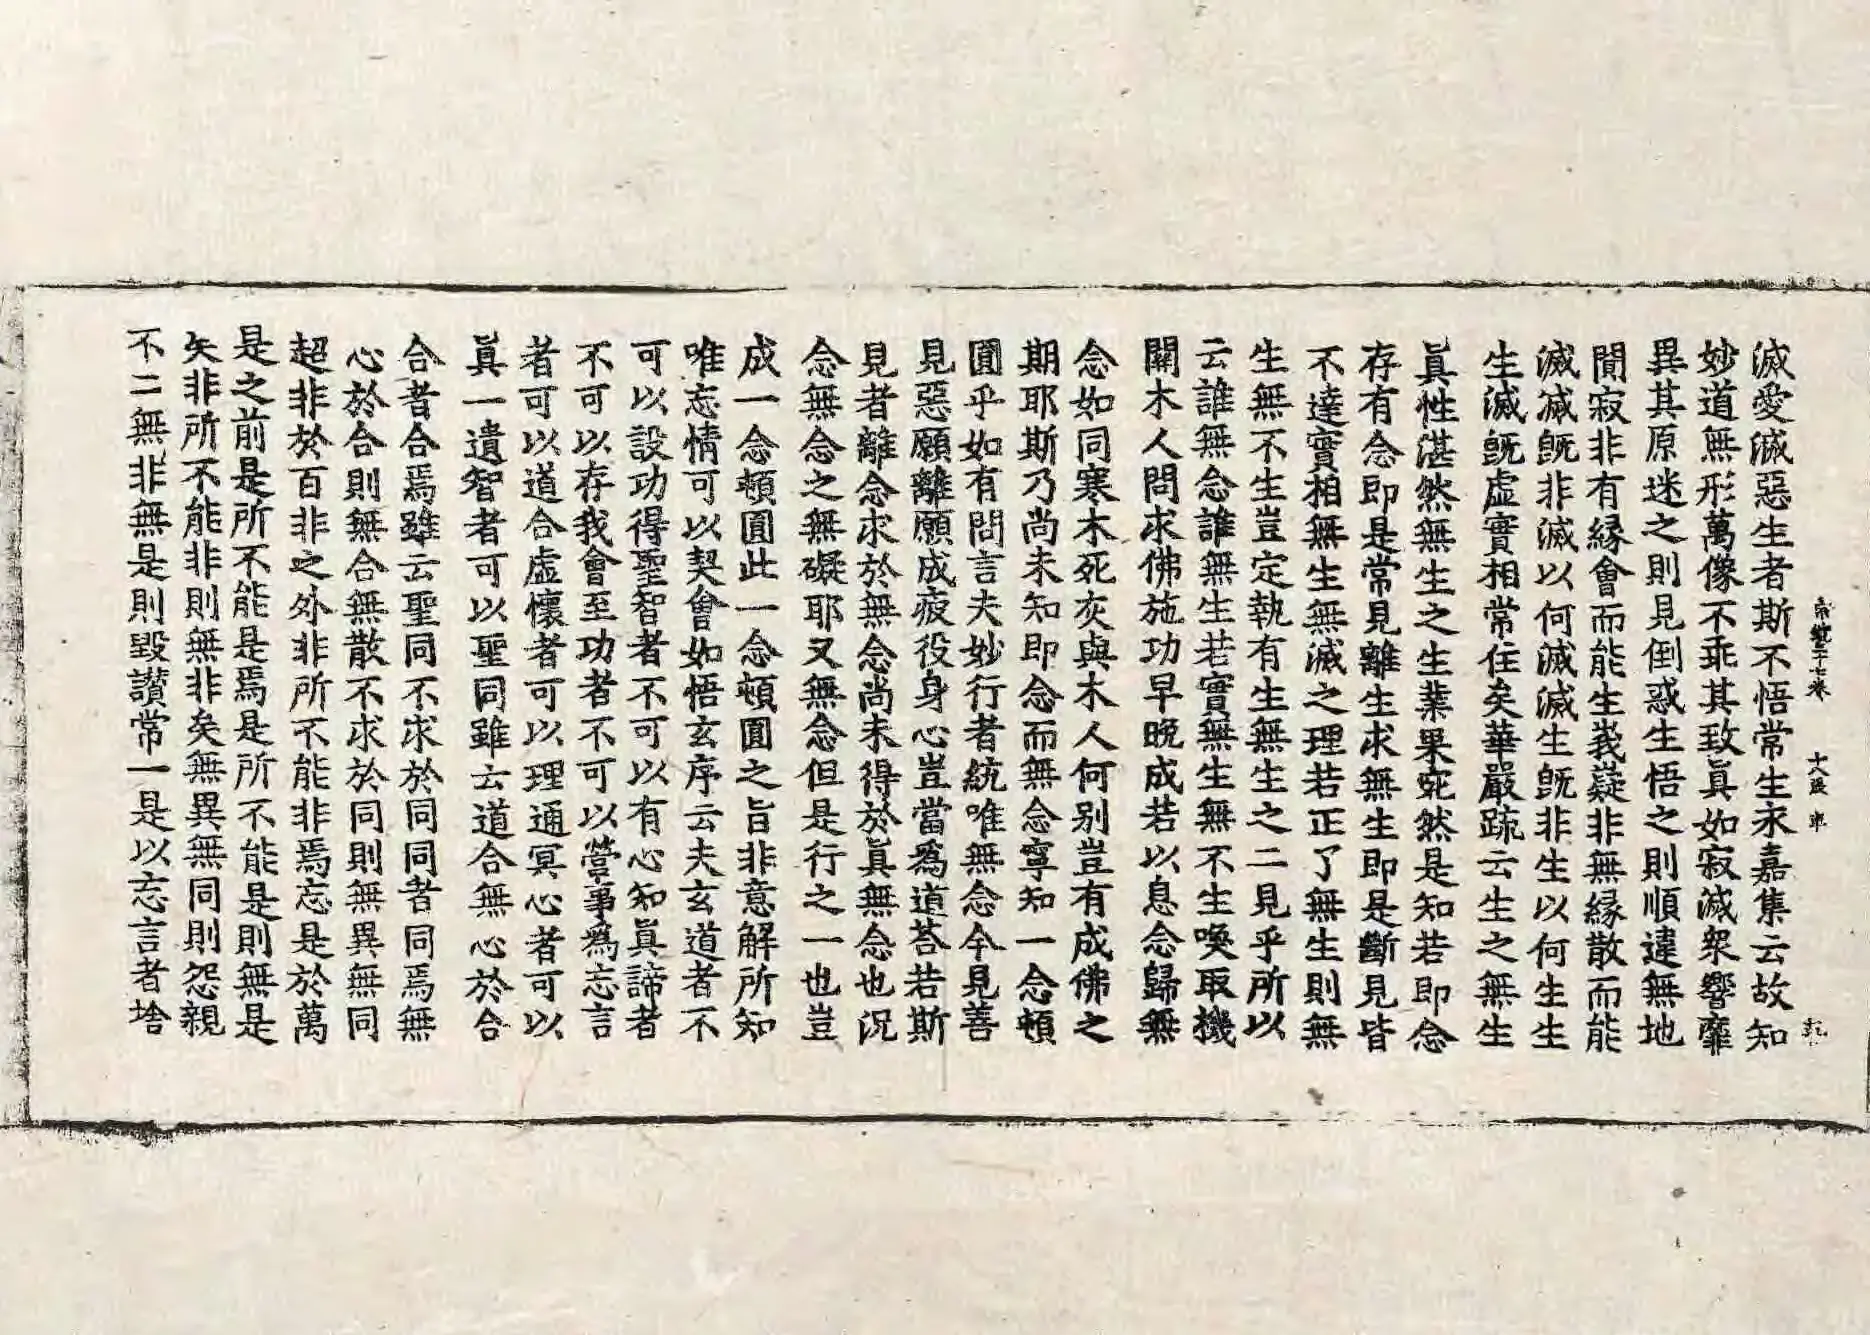 宗鏡三十七卷 十八張 聿
滅愛滅惡生者斯不悟常生永嘉集云故知
妙道無形萬像不乖其致眞如寂滅衆響靡
異其原迷之則見倒惑生悟之則順違無地
閴寂非有緣會而能生峩嶷非無緣散而能
滅滅旣非滅以何滅滅生旣非生以何生生
生滅旣虛實相常住矣華嚴䟽云生之無生
眞性湛然無生之生業果宛然是知若卽念
存有念卽是常見離生求無生卽是斷見皆
不達實相無生無滅之理若正了無生則無
生無不生豈定執有生無生之二見乎所以
云誰無念誰無生若實無生無不生喚取機
關木人問求佛施功早晚成若以息念歸無
念如同寒木死灰與木人何別豈有成佛之
期耶斯乃尚未知卽念而無念寧知一念頓
圓乎如有問言夫妙行者統唯無念今見善
見惡願離願成疲役身心豈當爲道荅若斯
見者離念求於無念尚未得於眞無念也況
念無念之無礙耶又無念但是行之一也豈
成一念頓圓此一念頓圓之旨非意解所知
唯忘情可以契會如悟玄序云夫玄道者不
可以設功得聖智者不可以有心知眞諦者
不可以存我會至功者不可以營事爲忘言
者可以道合虛懷者可以理通冥心者可以
眞一遺智者可以聖同雖云道合無心於合
合者合焉雖云聖同不求於同同者同焉無
心於合則無合無散不求於同則無異無同
超非於百非之外非所不能非焉忘是於萬
是之前是所不能是焉是所不能是則無是
矣非所不能非則無非矣無異無同則怨親
不二無非無是則毀讃常一是以忘言者捨